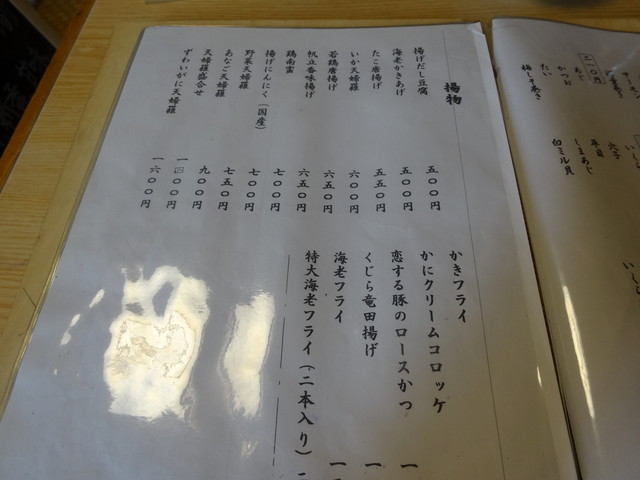 穴子
平目
しまあじ
白ミル貝
かつお
たい
梅しそ巻き
揚物
揚げだし豆腐 五〇〇円
海老かきあげ 五〇〇円
たこ唐揚げ 五五〇円
いか天婦羅 六〇〇円
若鶏唐揚げ 六五〇円
帆立香味揚げ 六五〇円
鶏南蛮 七〇〇円
揚げにんにく(国産) 七〇〇円
野菜天婦羅 七五〇円
あなご天婦羅 九〇〇円
天婦羅盛合せ 一四〇〇円
ずわいがに天婦羅 一六〇〇円
かきフライ
かにクリームコロッケ
恋する豚のロースかつ 一
くじら竜田揚げ 一
海老フライ 一
特大海老フライ(二本入り)